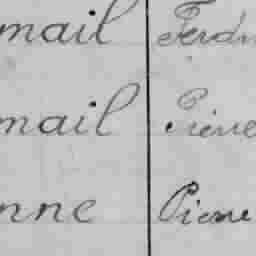 mail Ferdn
mail Pierre
nne Pierre